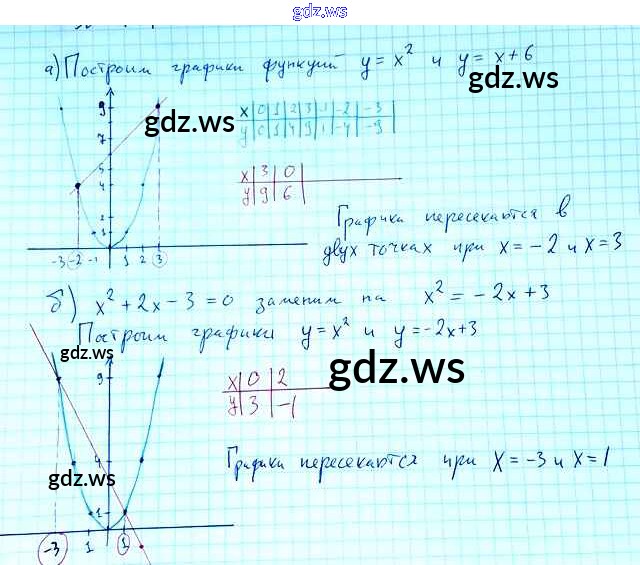 gdz.ws
а) Построим графики функций y = x² и y = x+6
gdz.ws
gdz.ws
9
7
5
4
2
1
-3 -2 -1 1 2 3
x 0 1 2 3 -1 -2 -3
y 0 1 4 9 1 -4 -9
x 3 0
y 9 6
Графики пересекаются в
двух точках при x = -2 и x = 3
б) x² + 2x - 3 = 0 заменим на x² = -2x + 3
Построим графики y = x² и y = -2x+3
gdz.ws
gdz.ws
gdz.ws
9
4
1
-3 1 1
x 0 2
y 3 -1
Графики пересекаются при x = -3 и x = 1